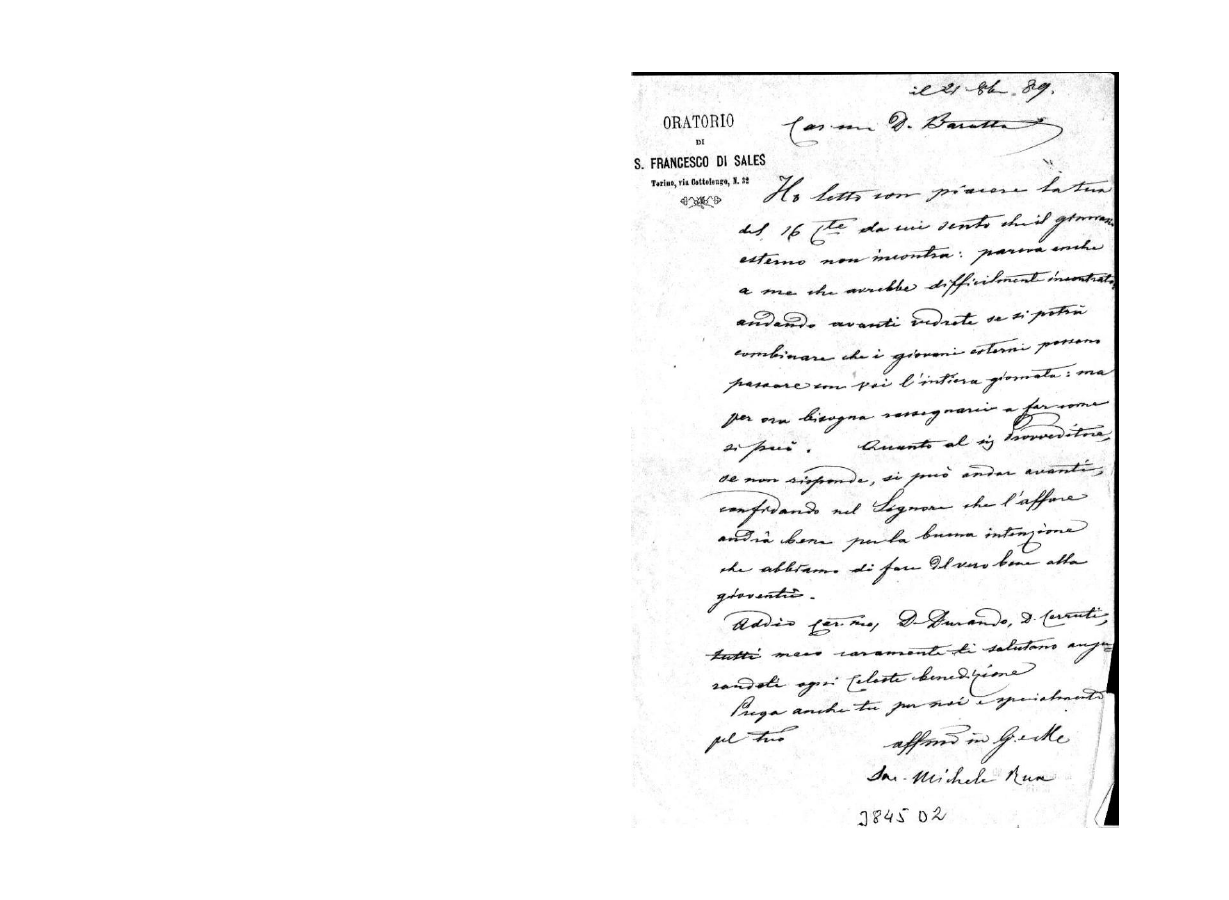 il 21 8b. 89.
ORATORIO
DI
S. FRANCESCO DI SALES
Torino, via Cottolengo, N. 32
Car mo D. Baratta
Ho letto con piacere la tua
del 16 Cte da cui sento che il
esterno non incontra: pareva anche
a me che avrebbe difficilmente incontrato,
andando avanti vedrete se si potrà
combinare che i giovani esterni possano
passare con voi l'intiera giornata: ma
per ora bisogna rassegnarci a far come
si può. Quanto al sig Provveditore,
se non risponde, si può andar avanti,
confidando nel Signore che l'affare
andrà bene per la buona intenzione
che abbiamo di fare del vero bene alla
gioventù.
Addio Car mo, D. Durando, D. Cerruti,
tutti meco caramente ti salutano augu=
randoti ogni Celeste benedizione
Prega anche tu per noi e specialmente
pel tuo affmo in G. e M.
Sac. Michele Rua
3845 D2